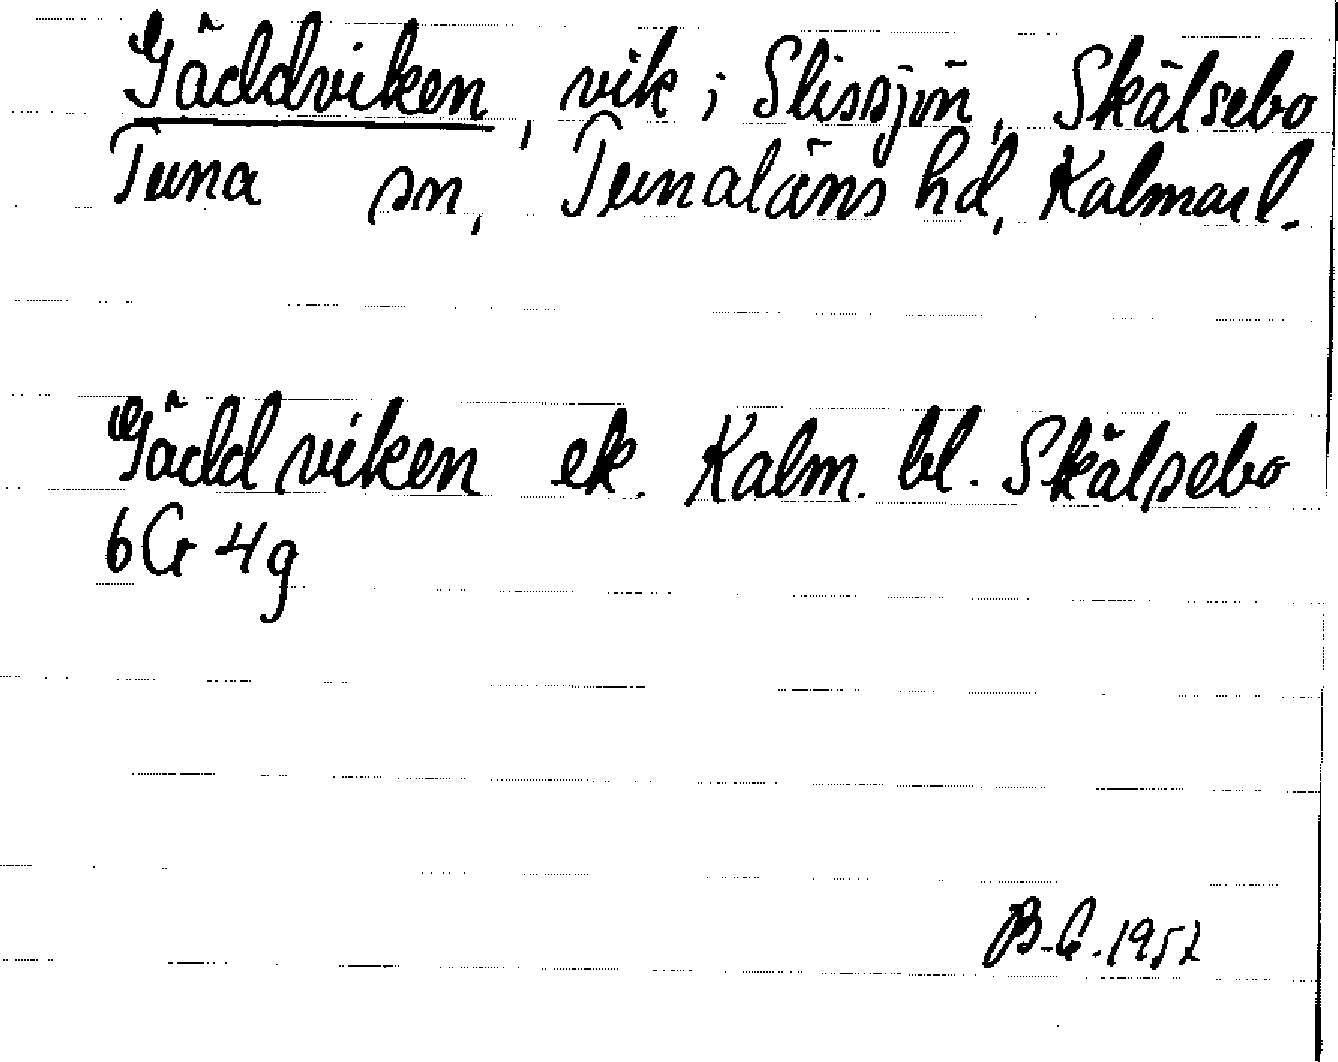 Gäddviken, vik i Slissjön, Skälsebo
Tuna sn, Tunaläns hd, Kalmar l.
Gäddviken ek. Kalm. bl. Skälsebo
6G 4g
B.G. 1952